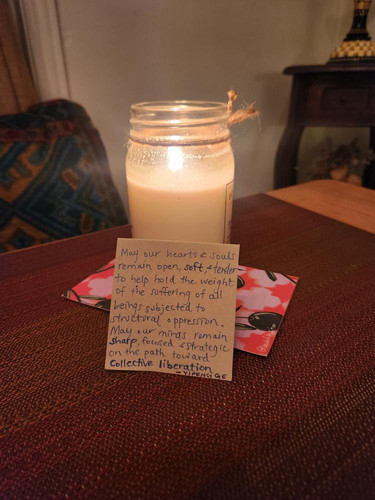 May our hearts & souls
remain open, soft, & tender
to help hold the weight
of the suffering of all
beings subjected to
structural oppression.
May our minds remain
sharp, focused & strategic
on the path toward
Collective liberation